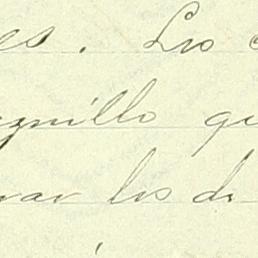 es. Los
gnillo qu
var los di